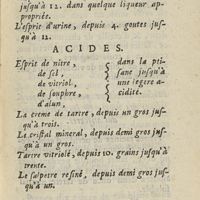 jusqu'à 12. dans quelque liqueur ap-
propriée.
L'esprit d'urine, depuis 4. goutes jus-
qu'à 12.
ACIDES.
Esprit de nitre, dans la pti-
de sel, sane jusqu'à
de vitriol, une legere a-
de souphre, cidité.
d'alun,
La creme de tartre, depuis un gros jus-
qu'à trois.
Le cristal mineral, depuis demi gros jus-
qu'à un gros.
Tartre vitriolé, depuis 10. grains jusqu'à
trente.
Le salpetre rafiné, depuis demi gros jus-
qu'à un.